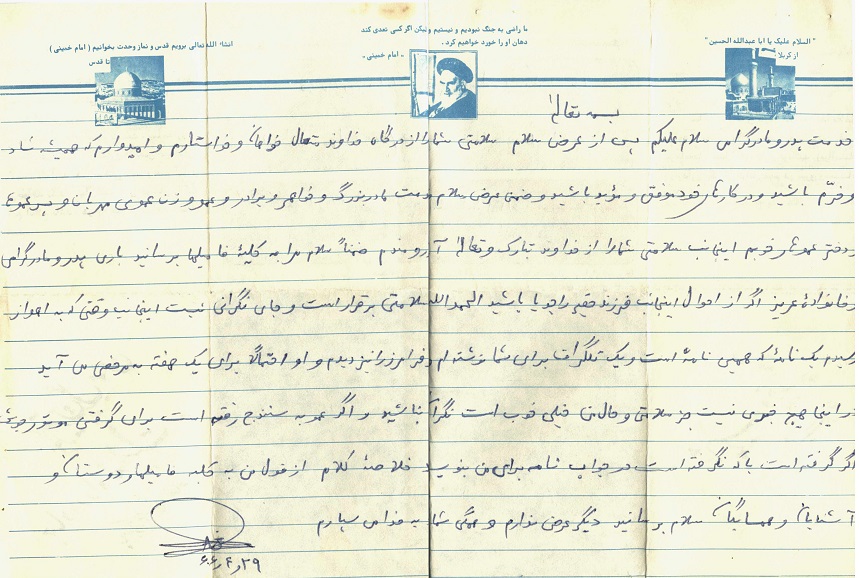 "السلام علیک یا ابا عبدالله الحسین"
از کربلا
ما راضی به جنگ نبودیم و نیستیم ولیکن اگر کسی تعدی کند
دهان او را خورد خواهیم کرد.
- امام خمینی -
انشاء الله تعالی برویم قدس و نماز وحدت بخوانیم ( امام خمینی )
تا قدس
بسمه تعالی
خدمت پدر و مادر گرامی سلام علیکم پس از عرض سلام سلامتی شما را از درگاه خداوند متعال خواهان و خواستارم و امیدوارم که همیشه شاد
و خرم باشید و در کارهای خود موفق و مؤید باشید و ضمن عرض سلام خدمت مادر بزرگ و خواهر و برادر و عمو و زن عموی مهربان و پسر عموها
و دختر عموهای خوبم اینجانب سلامتی شما را از خداوند تبارک و تعالی آرزومندم ضمناً سلام مرا به کلیهٔ فامیلها برسانید باری پدر و مادر گرامی
و خانوادهٔ عزیز اگر از احوال اینجانب فرزند حقیر را جویا باشید الحمدالله سلامتی برقرار است و جای نگرانی نیست اینجانب وقتی که به اهواز
رسیدم یک نامه که همین نامه است و یک تلگراف برای شما نوشته ام و فرامرز را نیز دیدم و او احتمالاً برای یک هفته به مرخصی می آید
در اینجا هیچ خبری نیست جز سلامتی و حال من خیلی خوب است نگران نباشید و اگر عمو به سنندج رفته است برای گرفتن موتور
اگر گرفته است یا که نگرفته است در جواب نامه برای من بنویسید خلاصهٔ کلام از قول من به کلیه فامیلها و دوستان و
آشنایان و همسایگان سلام برسانید دیگر عرضی ندارم و همگی شما را به خدا می سپارم
۶۶٫۴٫۲۹